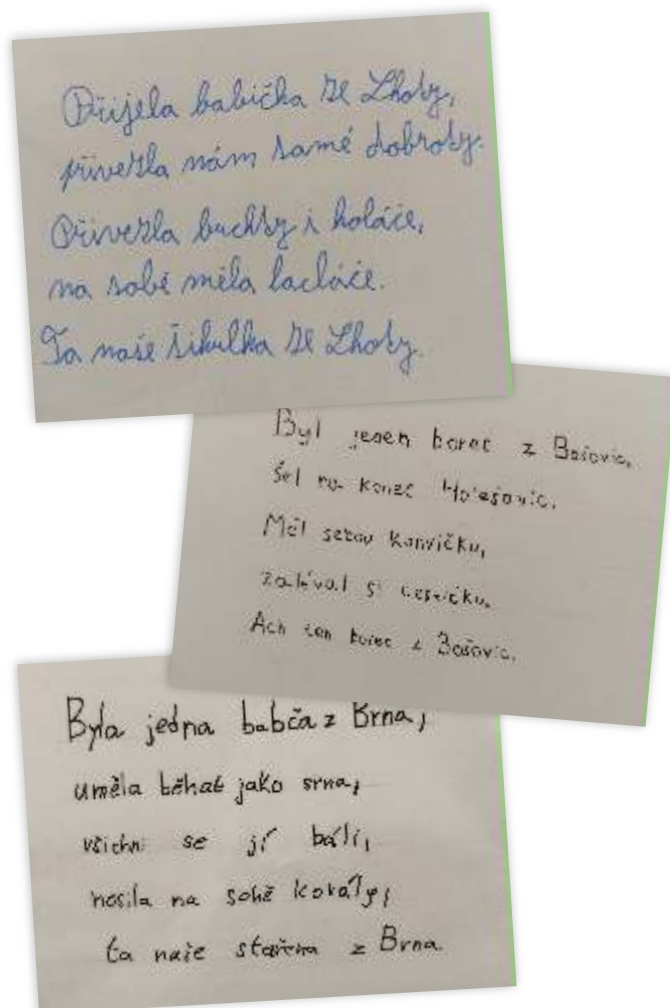 Přijela babička ze Lhoty,
přivezla nám samé dobroty.
Přivezla buchty i koláče,
na sobě měla lacláče.
Ta naše šikulka ze Lhoty.
Byl jeden borec z Bošovic,
šel na konec Holešovic.
Měl sebou konvičku,
zaléval si cestičku.
Ach ten borec z Bošovic.
Byla jedna babča z Brna,
uměla běhat jako srna,
všichni se jí báli,
nosila na sobě korály,
ta naše stařena z Brna.